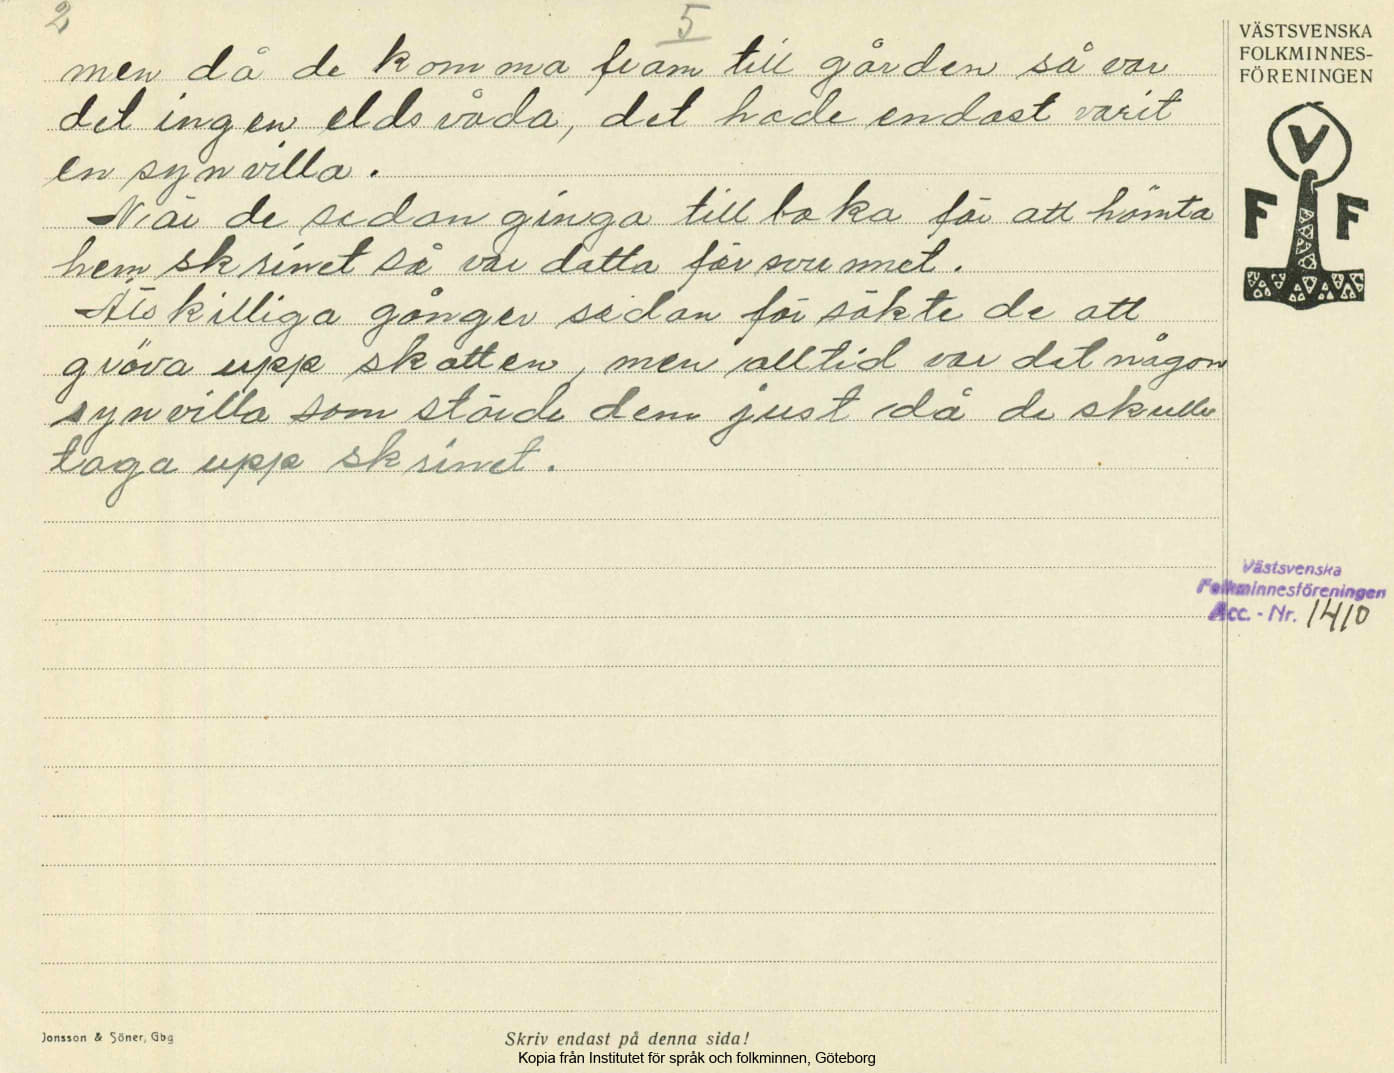 2
5
men då de komma fram till gården så var
det ingen eldsvåda, det hade endast varit
en synvilla.
När de sedan ginga tillbaka för att hämta
hem skrinet så var datta försvunnet.
Åtskilliga gånger sedan försökte de att
gräva upp skatten, men alltid var det någon
synvilla som störde dem just då de skulle
taga upp skrinet.
VÄSTSVENSKA
FOLKMINNES-
FÖRENINGEN
V
F F
Västsvenska
Folkminnesföreningen
Acc. - Nr. 1410
Jonsson & Söner, Gbg
Skriv endast på denna sida!
Kopia från Institutet för språk och folkminnen, Göteborg